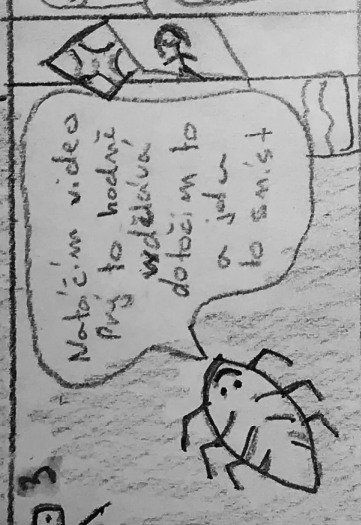 Natáčím video
Prý to hodně
vzdělává
dotočím to
a jdu
to sníst
3